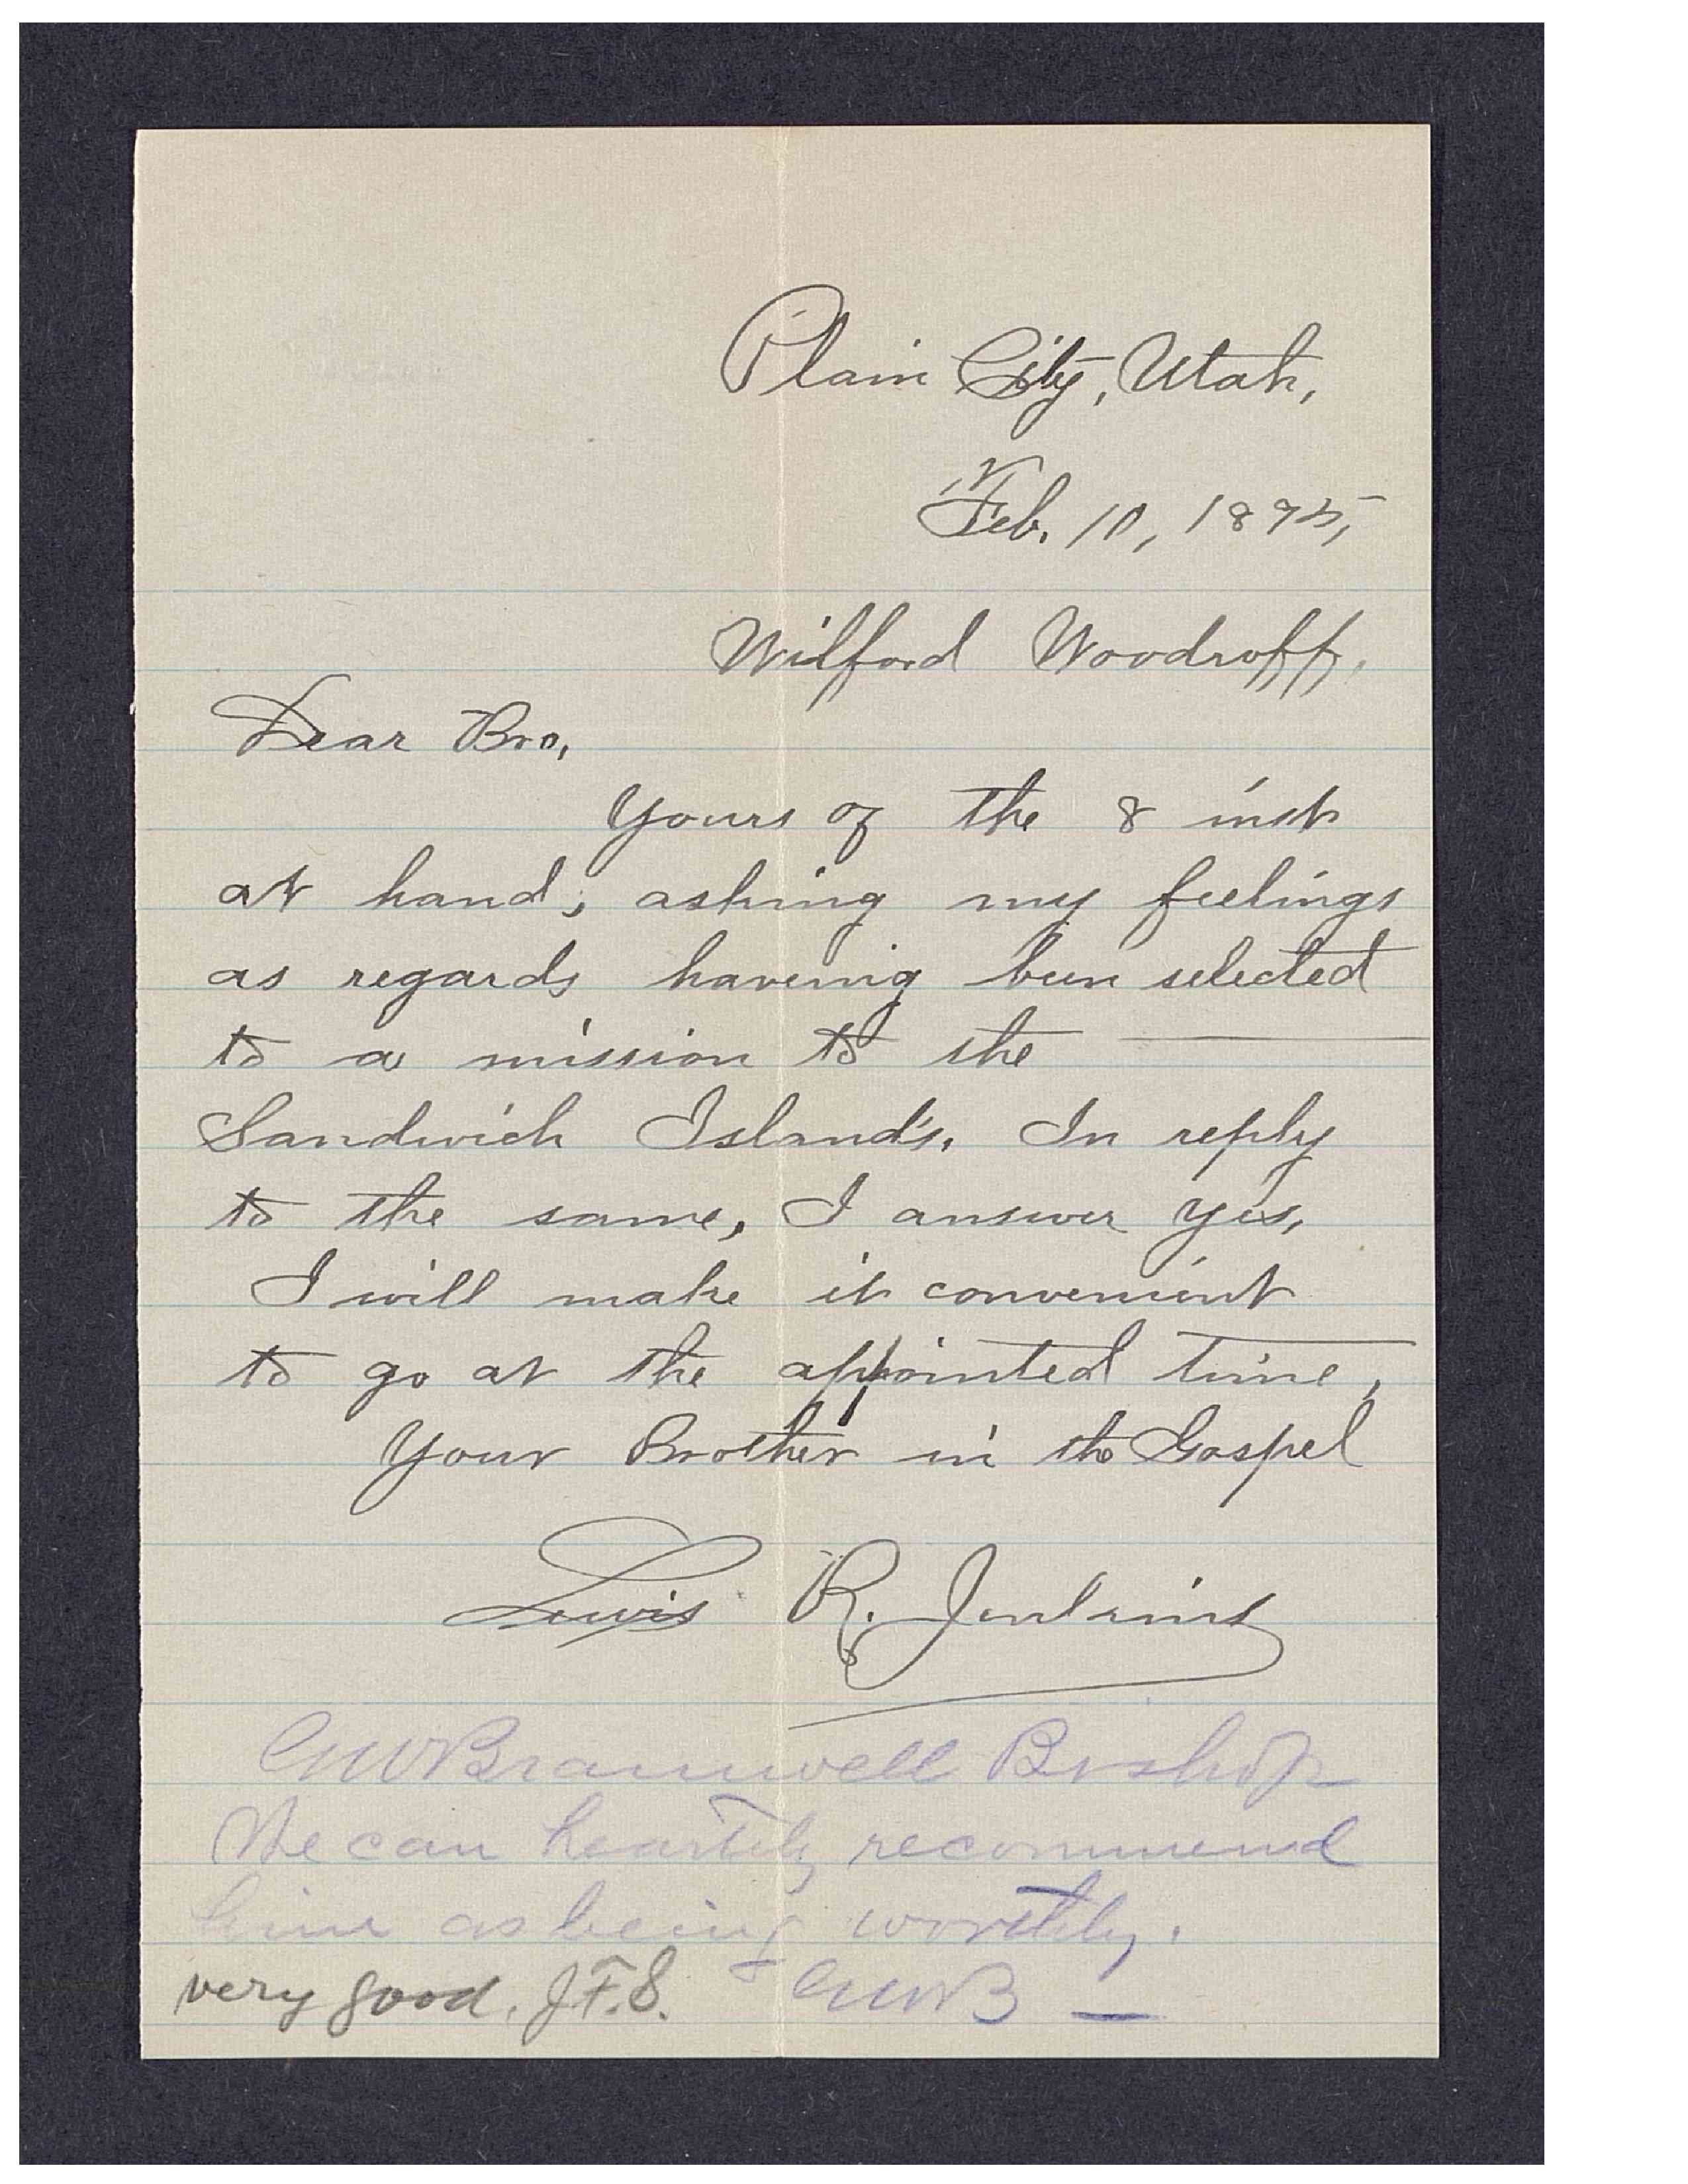 Plain City, Utah,
Feb. 10, 1895,
Wilford Woodroff,
Dear Bro,
Yours of the 8 inst
at hand, asking my feelings
as regards haveing been selected
to a mission to the
Sandwich Island's. In reply
to the same, I answer yes,
I will make it convenient
to go at the appointed time,
Your Brother in the Gospel
Lewis R. Jenkins
GW Bramwell Bishop
We can heartily recommend
him as being worthy.
very good. J.F.S. GWB